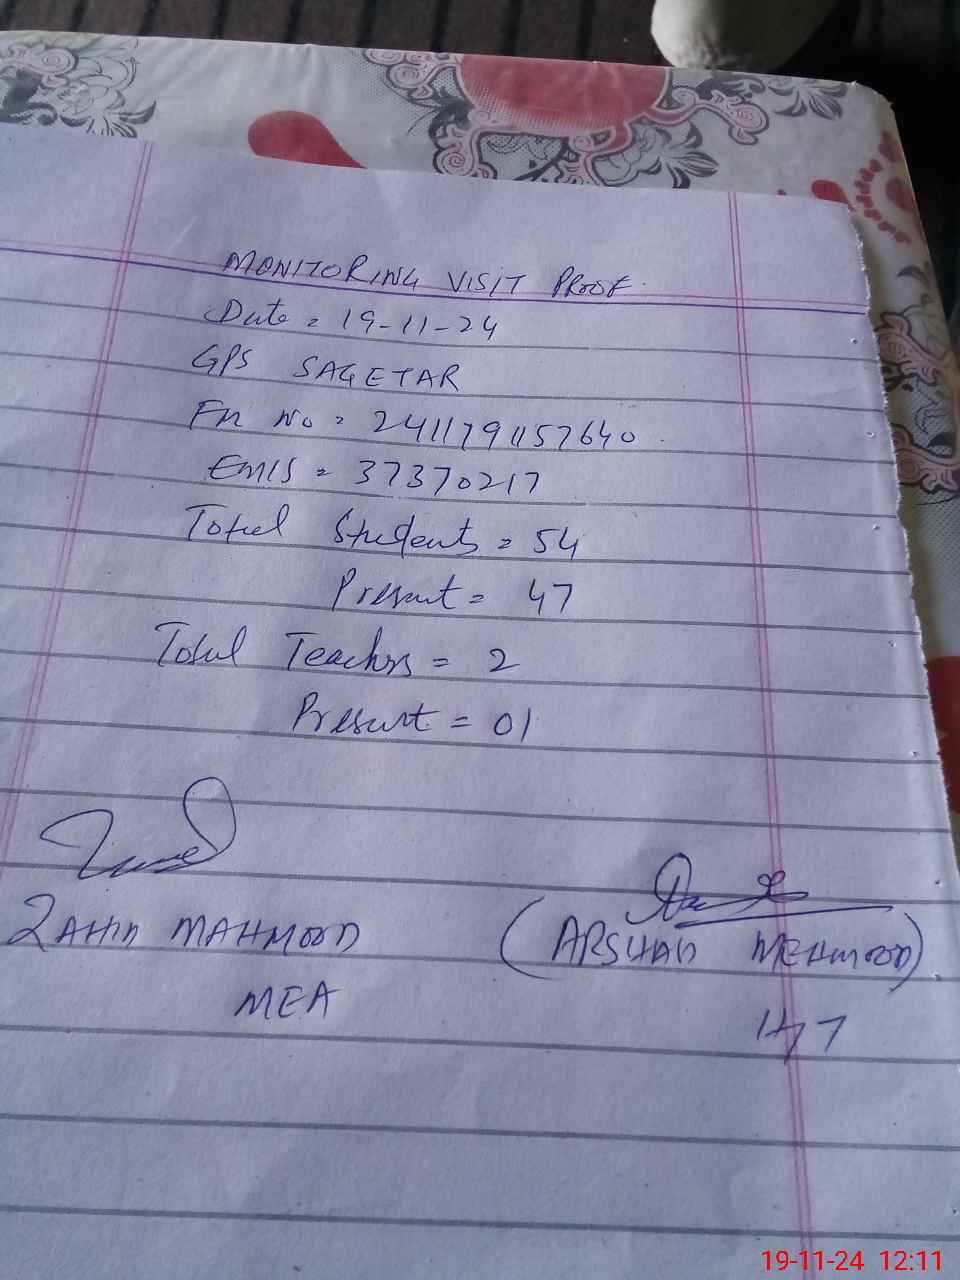 MONITORING VISIT PROOF.
Date = 19-11-24
GPS SAGETAR
Fn No = 2411791157640
EMIS = 37370217
Total Students = 54
Present = 47
Total Teachers = 2
Present = 01
ZAHID MAHMOOD
(ARSHAD MEHMOOD)
MEA
19-11-24 12:11